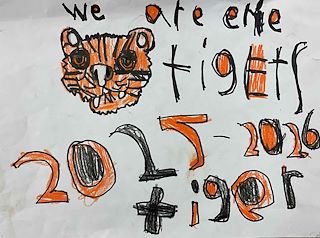 we are the
tigers
2025-2026
tiger